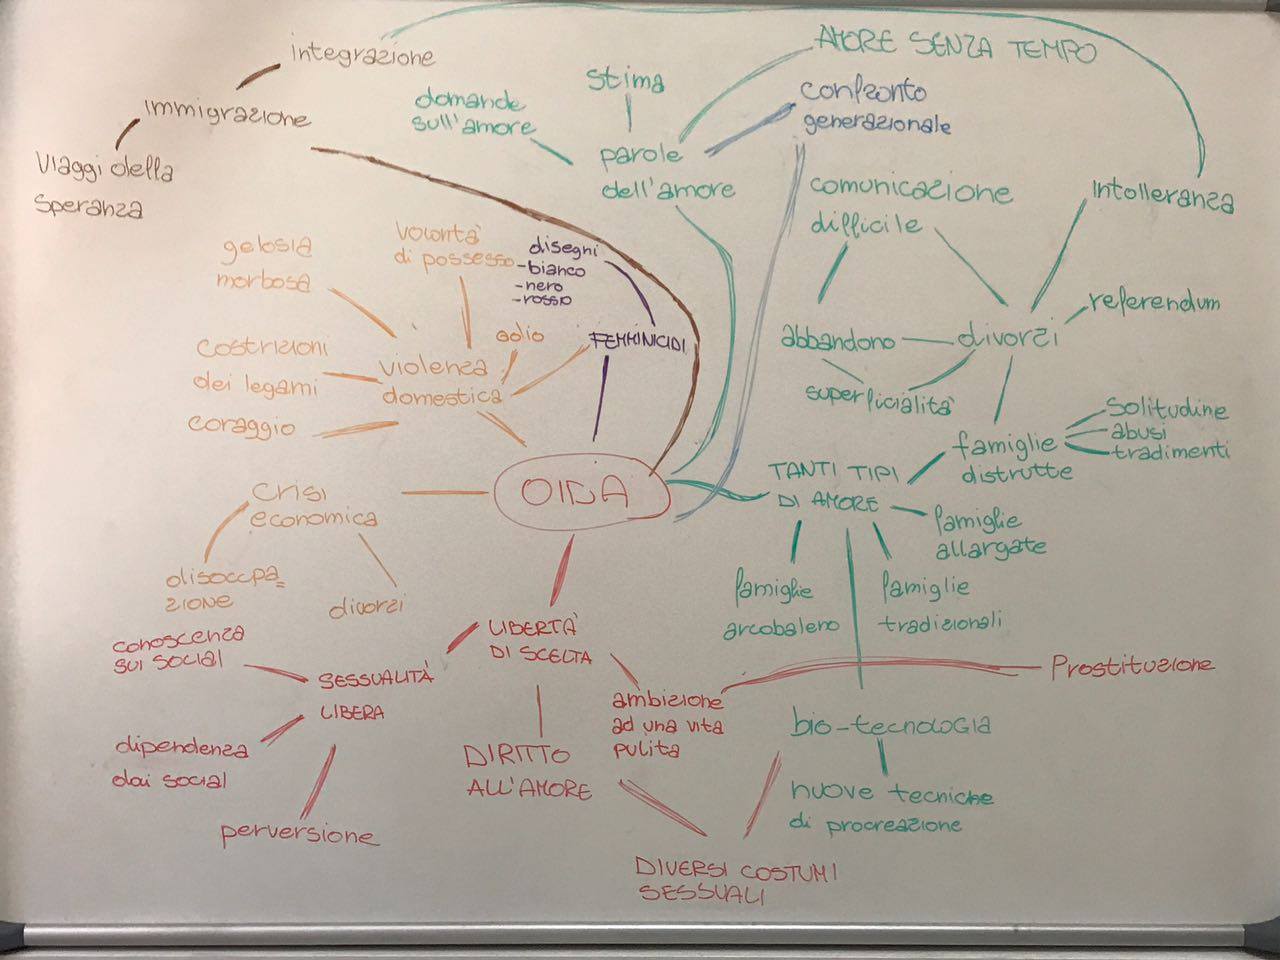 integrazione
immigrazione
Viaggi della
Speranza
AMORE SENZA TEMPO
stima
domande
sull'amore
parole
dell'amore
confronto
generazionale
comunicazione
difficile
intolleranza
referendum
abbandono
divorzi
superficialità
famiglie
distrutte
solitudine
abusi
tradimenti
gelosia
morbosa
volontà
di possesso
disegni
-bianco
-nero
-rosso
odio
FEMMINICIDI
costrizioni
dei legami
violenza
domestica
coraggio
TANTI TIPI
DI AMORE
famiglie
allargate
famiglie
arcobaleno
famiglie
tradizionali
crisi
economica
disoccpa=
zione
divorzi
conoscenza
sui social
SESSUALITÀ
LIBERA
LIBERTA'
DI SCELTA
dipendenza
dai social
perversione
DIRITTO
ALL'AMORE
ambizione
ad una vita
pulita
Prostituzione
bio-tecnologia
nuove tecniche
di procreazione
DIVERSI COSTUMI
SESSUALI